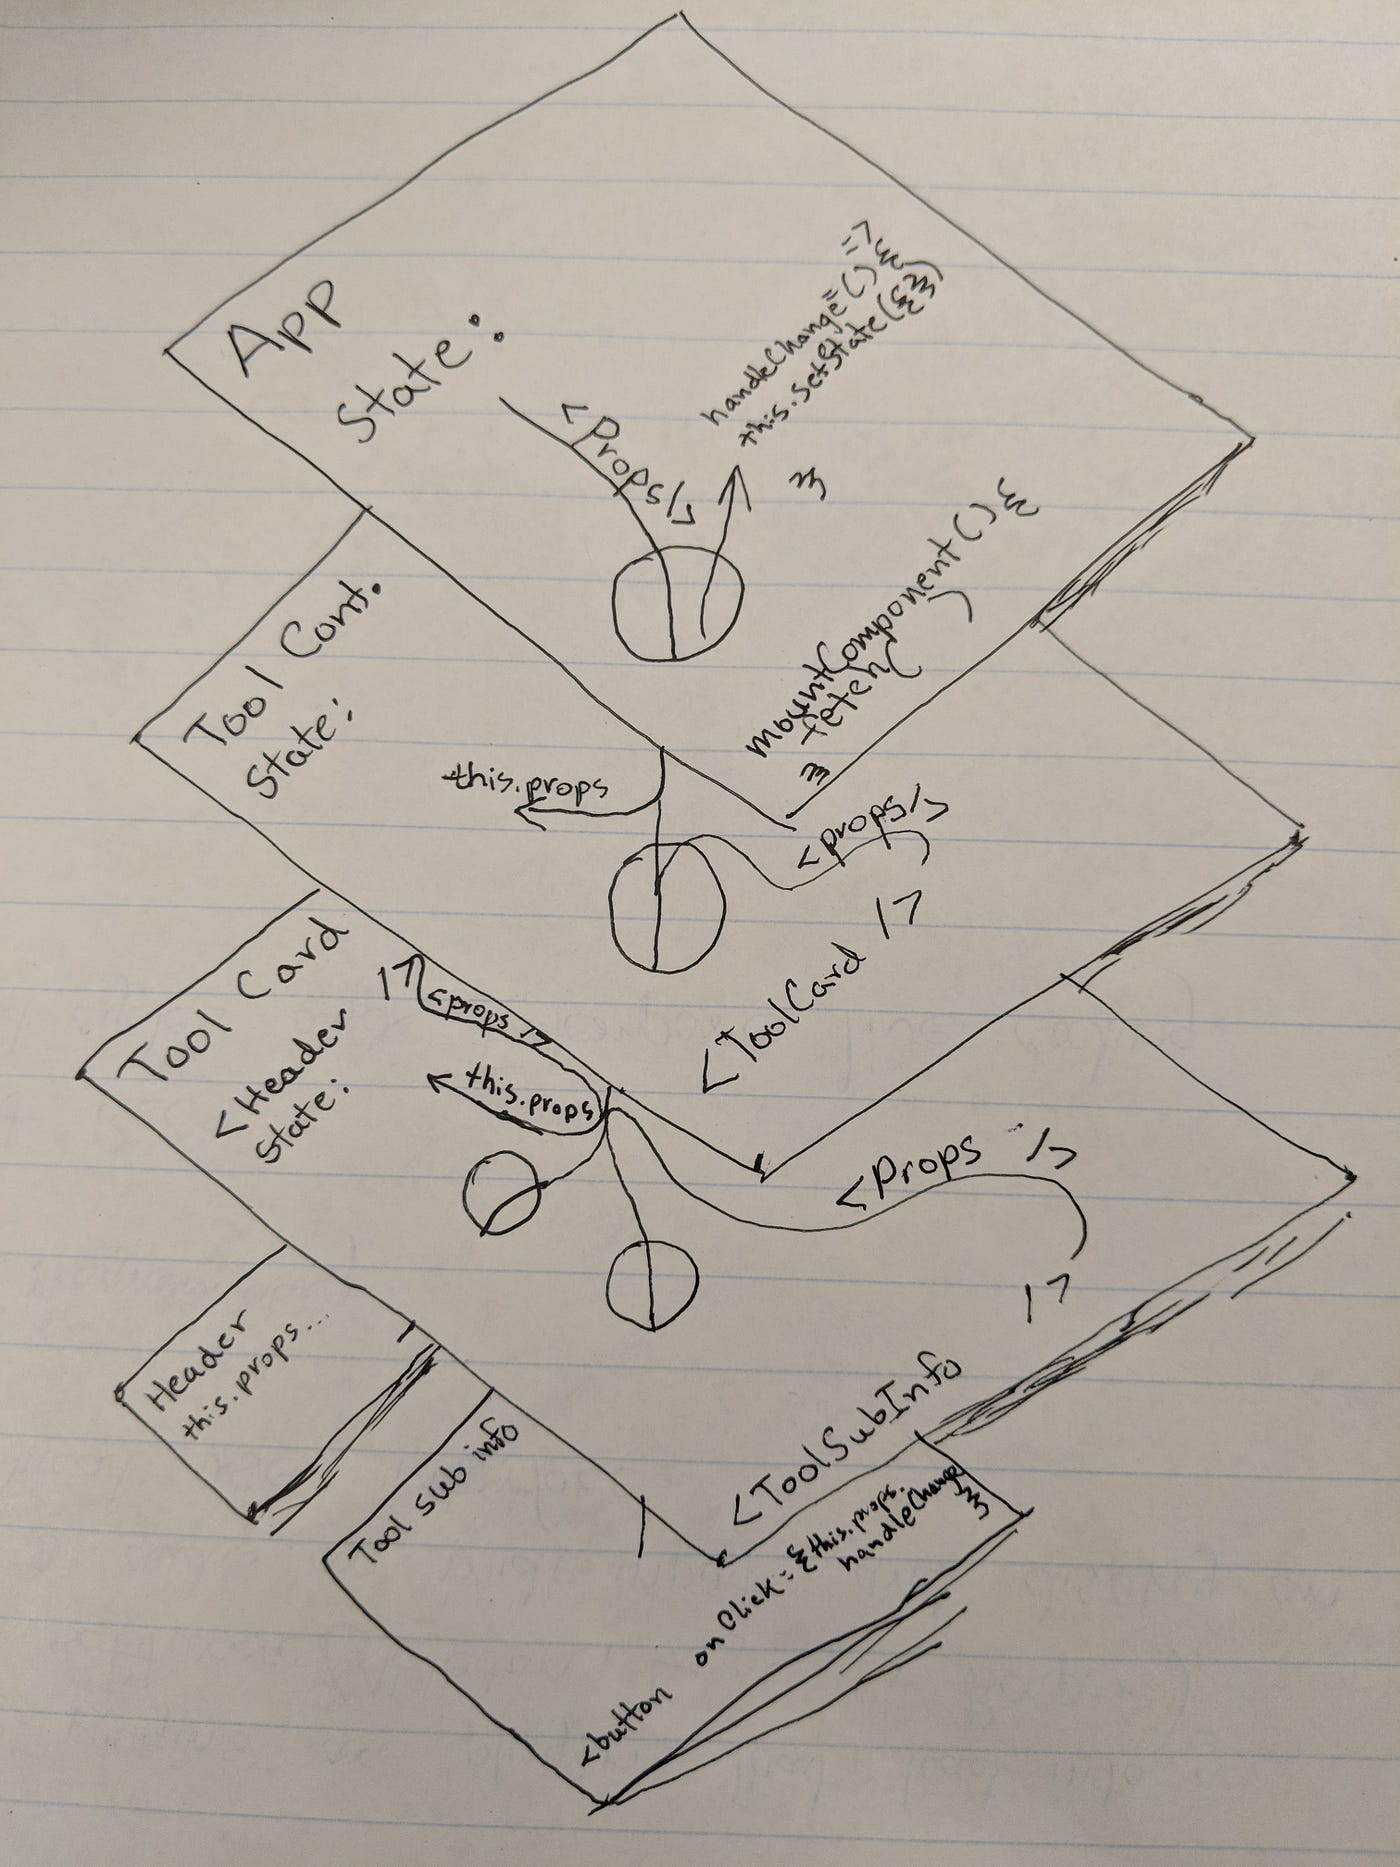 App
State:
<Props/>
handleChange = () =>
{
this.setState({})
}
mountComponent() {
fetch( )
}
Tool Cont.
State:
this.props
<props/>
<ToolCard />
Tool Card
<Header />
State:
<props />
this.props
<Props />
<ToolSubInfo />
Header
this.props...
Tool sub info
<button onClick={this.props.
handleChange
}